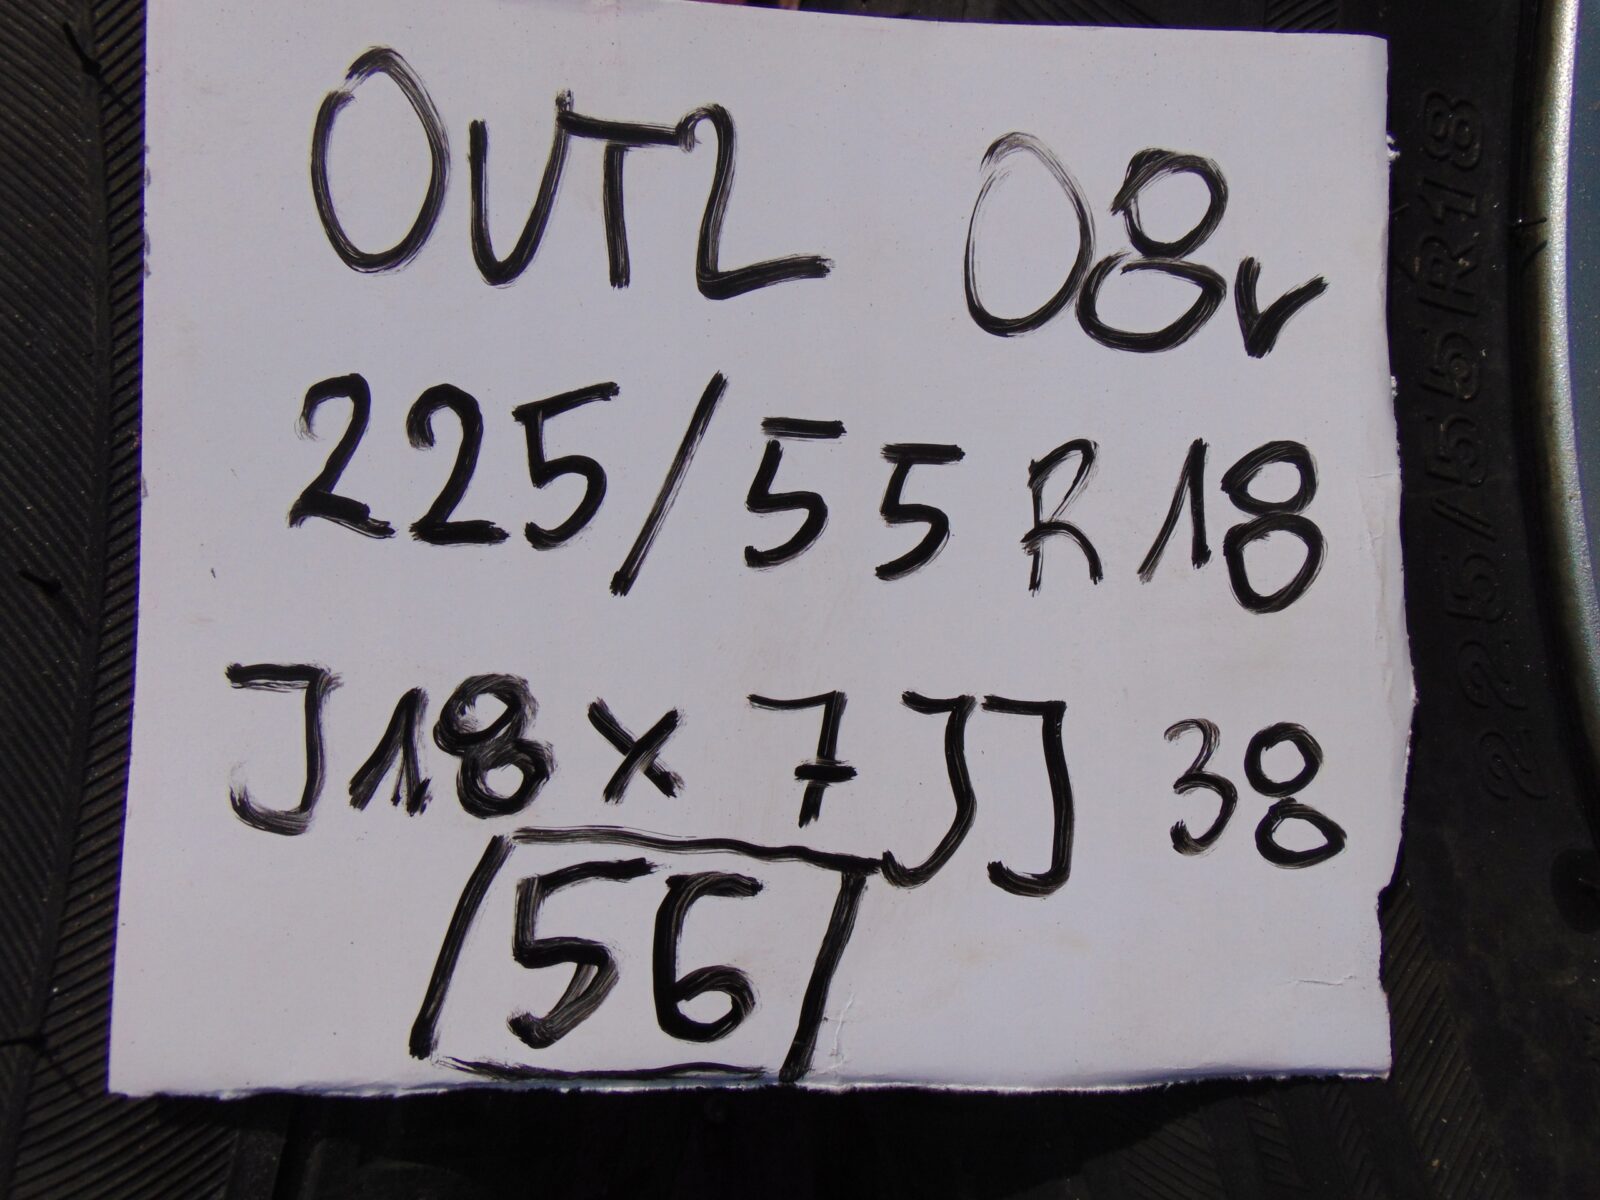 OUTL 08r
225/55 R 18
J18 x 7JJ 38
56
225/55R18